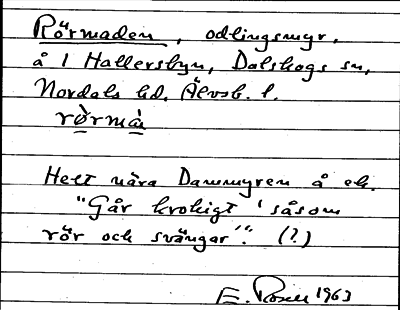 Rörmaden, odlingsmyr.
å 1 Hallersbyn, Dalskogs sn,
Nordals hd. Älvsb. l.
rø̀rmà
Helt nära Dammyren å ek.
"Går krokigt 'såsom
rör och svängar'." (?)
E. Rosell 1963